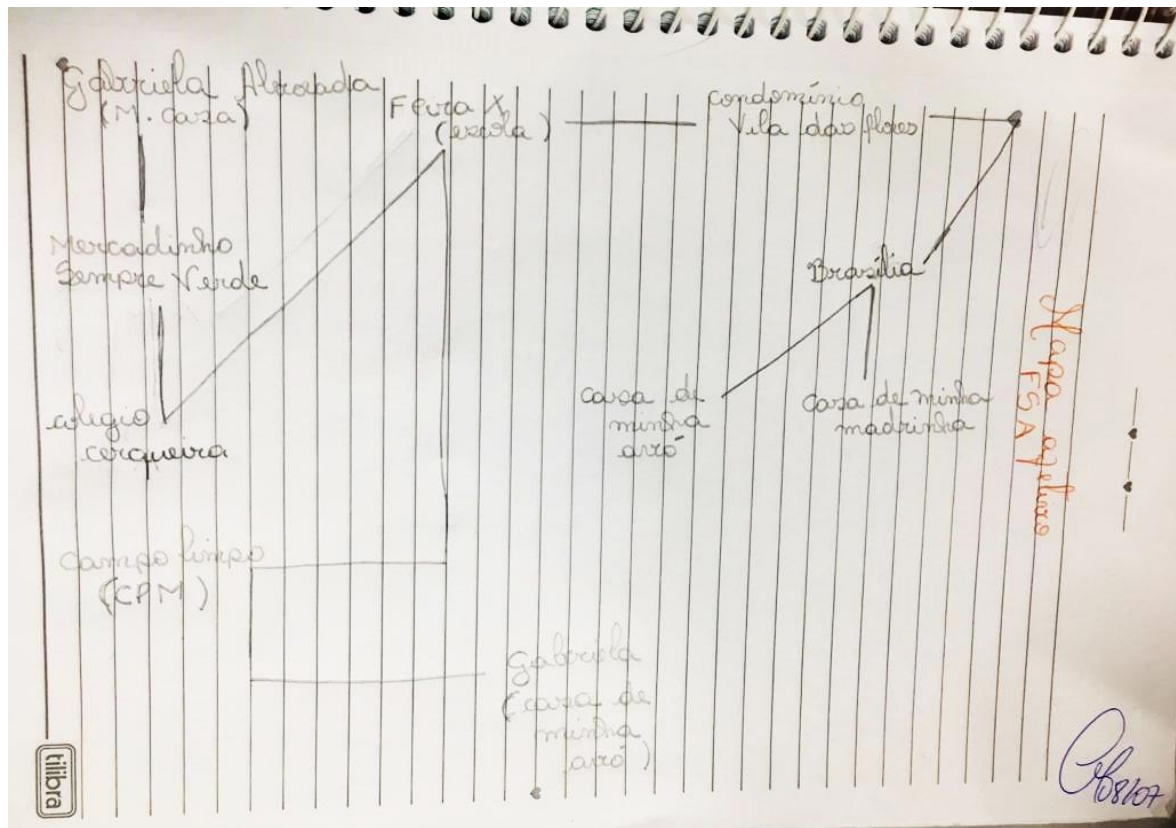 Gabriela Alvorada
(M. Casa)
Feira X
(escola)
condomínio
Vila das flores
Mercadinho
Sempre Verde
Brasília
colégio
cerqueira
casa de
minha
avó
casa de minha
madrinha
Campo limpo
(CPM)
Gabriela
(casa de
minha
avó)
Mapa afetivo
FSA
tilibra
08/07